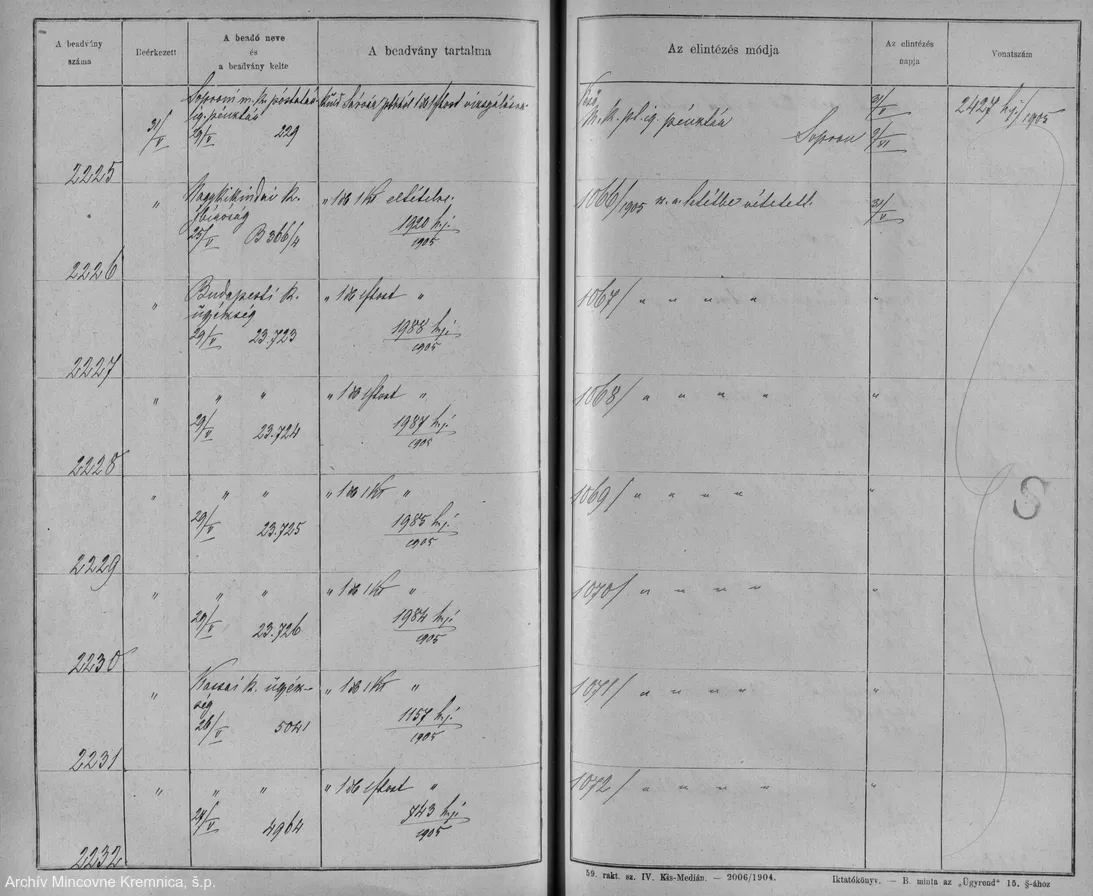 A beadvány
száma
Beérkezett
A beadó neve
és
a beadvány kelte
A beadvány tartalma
Az elintézés módja
Az elintézés
napja
Vonatszám
2225
31/V
Soproni m. k.
29/V 229
Sopron
31/V
2427 hj/1905
2226
"
Nagykikindai k.
jbíróság
25/V B 366/4
" 1 db 1 Kr
1920 hj.
1905
1066/1905
vétetett
31/V
2227
"
Budapesti k.
ügyészség
29/V 23.723
" 1 db "
1988 hj.
1905
1067/ " " " "
"
2228
" " "
29/V 23.724
" 1 db "
1987 hj.
1905
1068/ " " " "
"
2229
" " "
29/V 23.725
" 1 db 1 Kr "
1985 hj.
1905
1069/ " " " "
"
2230
" " "
29/V 23.726
" 1 db 1 Kr "
1984 hj.
1905
1070/ " " " "
"
2231
"
Kassai k. ügyész-
ség
26/V 5041
" 1 db 1 Kr "
1157 hj.
1905
1071/ " " " "
"
2232
" " "
4964
" 1 db "
743 hj.
1905
1072/ " " " "
"
S
59. rakt. sz. IV. Kis-Medián. — 2006/1904.
Iktatókönyv. — B. minta az „Ügyrend" 15. §-ához
Archív Mincovne Kremnica, š.p.